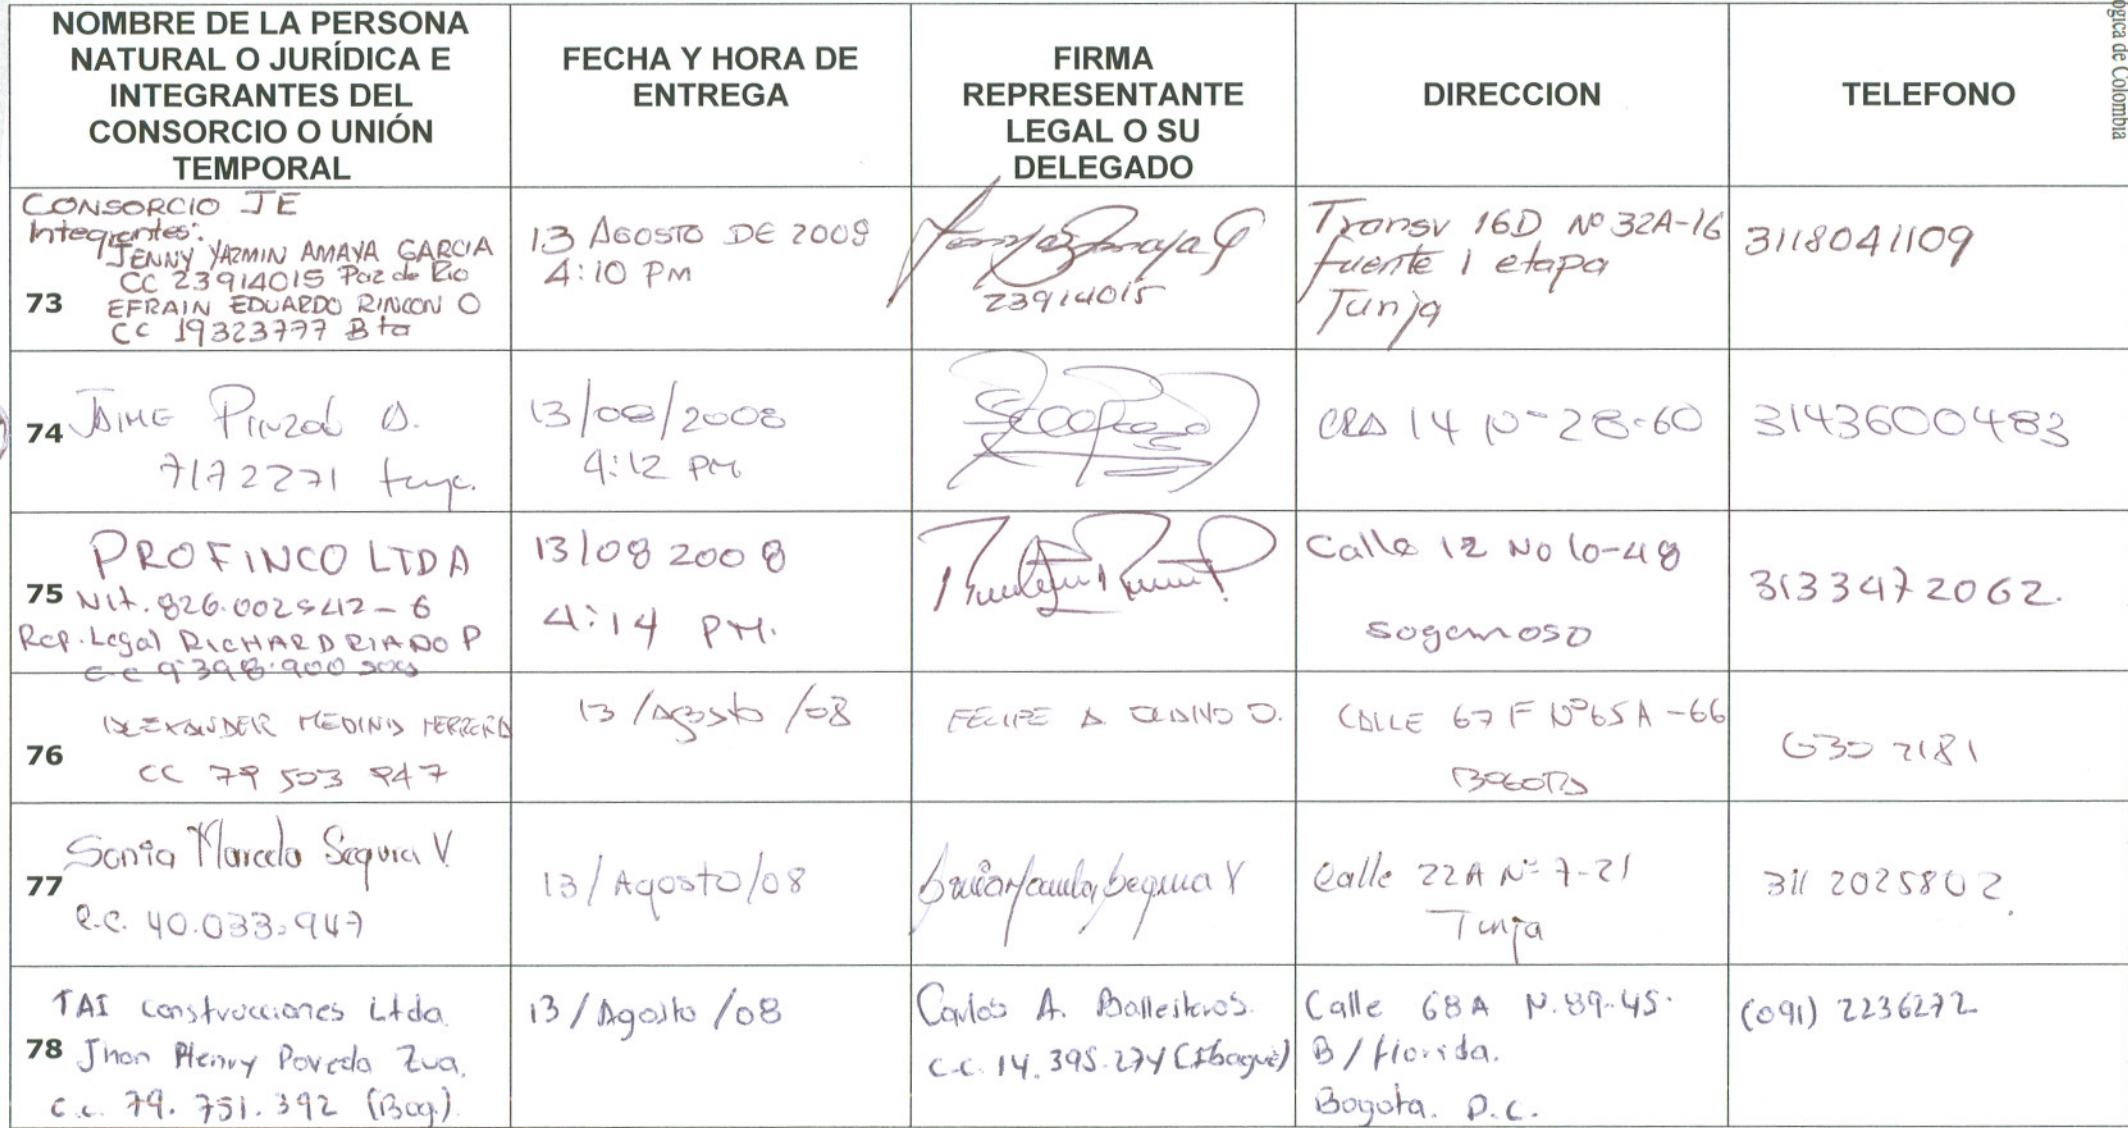 NOMBRE DE LA PERSONA
NATURAL O JURÍDICA E
INTEGRANTES DEL
CONSORCIO O UNIÓN
TEMPORAL
FECHA Y HORA DE
ENTREGA
FIRMA
REPRESENTANTE
LEGAL O SU
DELEGADO
DIRECCION
TELEFONO
ogica de Colombia
CONSORCIO JE
Integrantes:
JENNY YAZMIN AMAYA GARCIA
CC 23914015 Paz de Rio
73 EFRAIN EDUARDO RINCON O
CC 19323777 Bta
13 AGOSTO DE 2008
4:10 PM
23914015
Transv 16D Nº 32A-16
fuente 1 etapa
Tunja
3118041109
74 JAIME Pinzon O.
7172271 tunja.
13/08/2008
4:12 PM
CRA 14 Nº 28-60
3143600483
PROFINCO LTDA
75 Nit. 826.002542-6
Rep. Legal RICHARD RIAÑO P
CC 9'398.900 sog
13/08 2008
4:14 PM.
Calle 12 No 10-48
sogamoso
3133472062.
ALEXANDER MEDINA HERRERA
76 CC 79 503 947
13/Agosto/08
FELIPE A O.
CALLE 67 F Nº 65A-66
BOGOTA
630 2181
Sonia Marcela Segura V.
77
C.C. 40.033.947
13/Agosto/08
Sonia Marcela Segura V
Calle 22A Nº 7-21
Tunja
311 2025802.
TAI construcciones Ltda.
78 Jhon Henry Poveda Zua.
c.c. 79.751.392 (Bog.)
13/Agosto/08
Carlos A. Ballesteros.
C.C. 14.395.274 (Ibagué)
Calle 68A N. 89-45.
B/Florida.
Bogota. D.C.
(091) 2236272